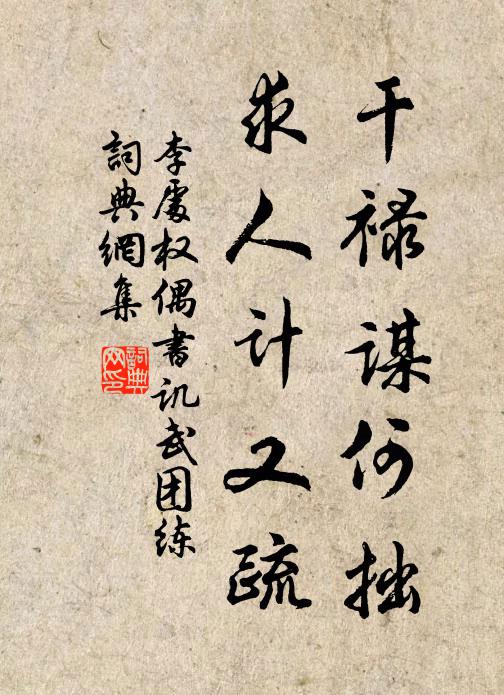 干禄谋何拙
求人计又疏
李处权偶书讥武团练
词典网集
词典网印